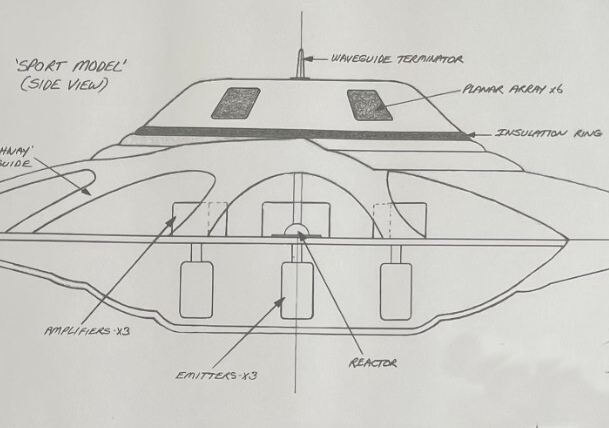 'SPORT MODEL'
(SIDE VIEW)
WAVEGUIDE TERMINATOR
PLANAR ARRAY x6
INSULATION RING
AMPLIFIERS-x3
EMITTERS-x3
REACTOR